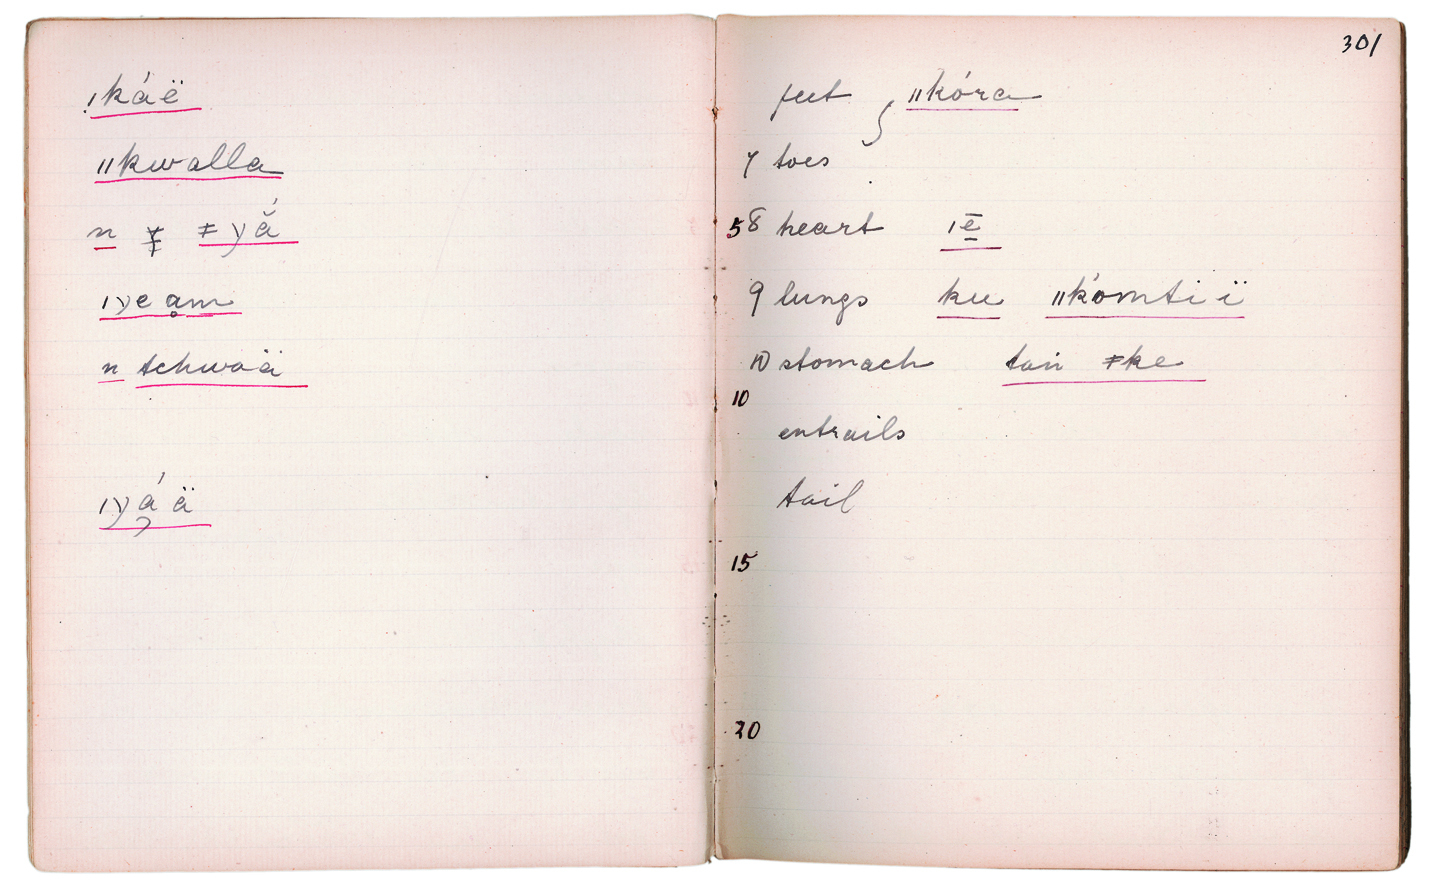 ǀkáë
ǁkwalla
n ǂyǎ́
ǀyeam
n tchwaä
ǀyá̡ ä
301
feet } ǁkóra
7 toes
58 heart ǀē̱
9 lungs ku ǁkomti ï
10 stomach tań ǂke
10
entrails
tail
15
20